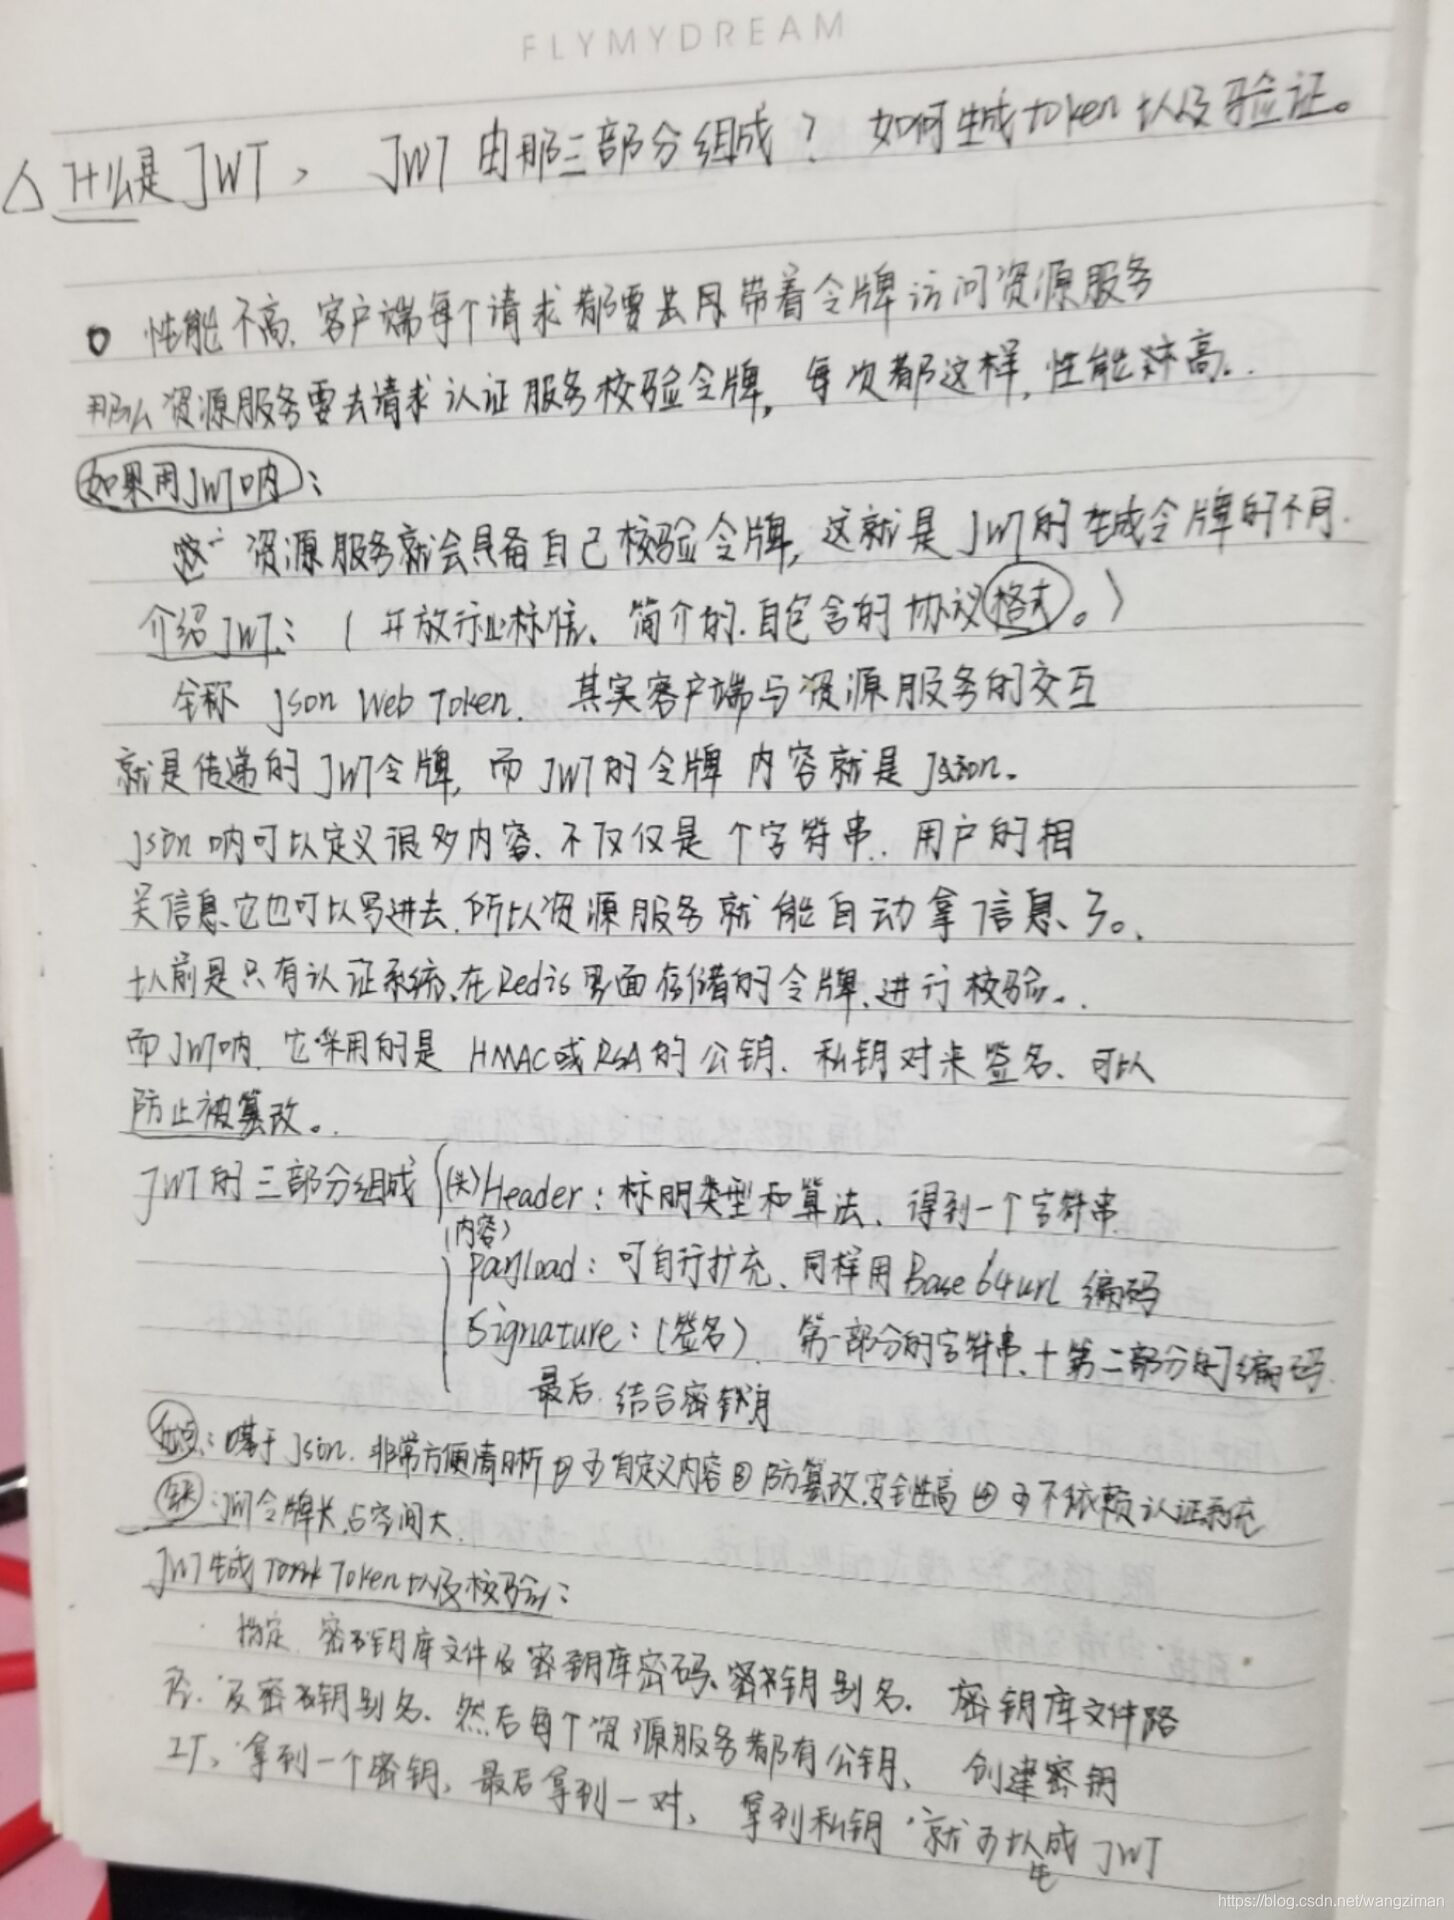 FLYMYDREAM
△ 什么是JWT, JWT由那三部分组成? 如何生成token以及验证。
性能不高. 客户端每个请求都要去带着令牌访问资源服务
那么资源服务要去请求认证服务校验令牌, 每次都这样, 性能不高..
如果用JWT呐:
资源服务就会具备自己校验令牌, 这就是JWT的生成令牌的不同.
介绍JWT: (开放行业标准、简介的.自包含的协议格式。)
全称 Json Web Token. 其实客户端与资源服务的交互
就是传递的JWT令牌, 而JWT的令牌 内容就是Json。
Json呐可以定义很多内容、不仅仅是个字符串. 用户的相
关信息、它也可以写进去.所以资源服务就能自动拿信息了。
以前是只有认证系统、在Redis里面存储的令牌、进行校验。.
而JWT呐. 它采用的是 HMAC或RSA的公钥、私钥对来签名、可以
防止被篡改。.
JWT的三部分组成 (头)Header: 标明类型和算法、得到一个字符串
(内容)
payload: 可自行扩充、同样用Base64url 编码
Signature: (签名) 第一部分的字符串、+第二部分的编码.
最后. 结合密钥
优点: 基于Json. 非常方便清晰 ② 可自定义内容 ③ 防篡改,安全性高 ④ 可不依赖认证系统
缺: 令牌长,占空间大.
JWT生成 Token以及校验:
指定. 密钥库文件及密钥库密码、密钥别名. 密钥库文件路
径. 及密钥别名. 然后每个资源服务都有公钥、 创建密钥
工厂、拿到一个密钥、最后拿到一对、 拿到私钥 就可以生成JWT
https://blog.csdn.net/wangziman